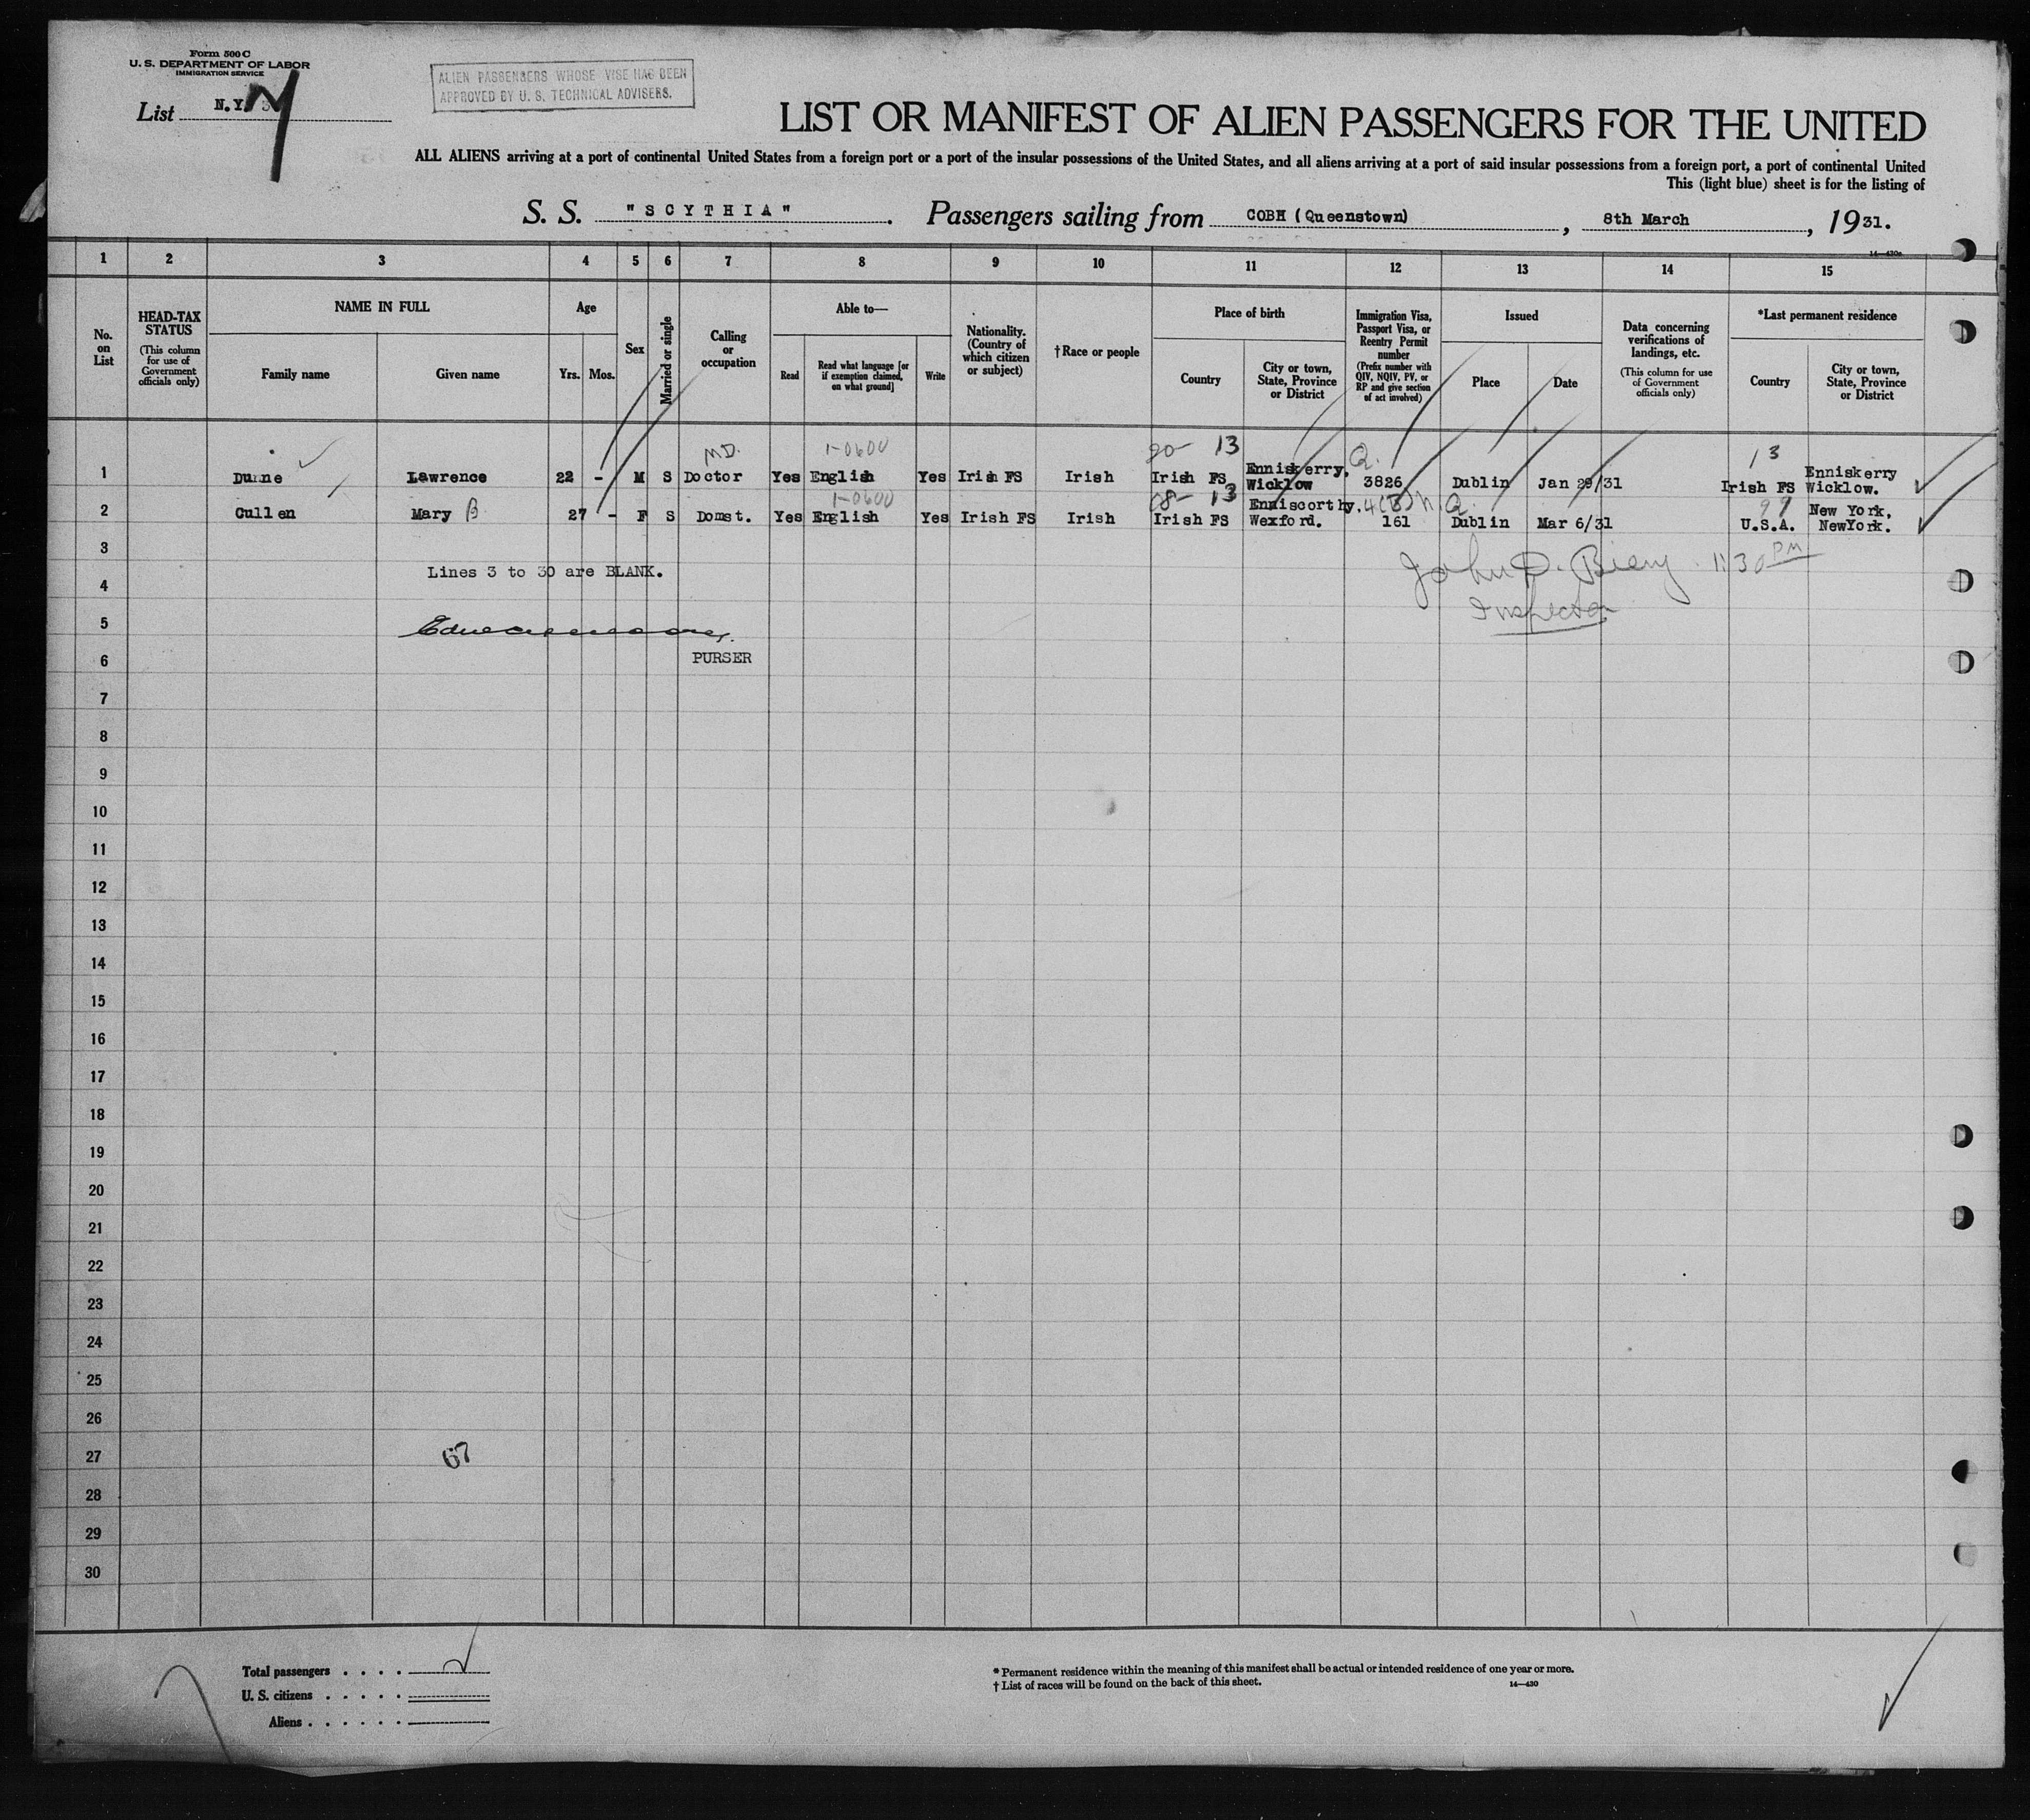 Form 500 C
U. S. DEPARTMENT OF LABOR
IMMIGRATION SERVICE
List N.Y.
ALIEN PASSENGERS WHOSE VISE HAS BEEN
APPROVED BY U. S. TECHNICAL ADVISERS.
LIST OR MANIFEST OF ALIEN PASSENGERS FOR THE UNITED
ALL ALIENS arriving at a port of continental United States from a foreign port or a port of the insular possessions of the United States, and all aliens arriving at a port of said insular possessions from a foreign port, a port of continental United
This (light blue) sheet is for the listing of
S. S. "SCYTHIA". Passengers sailing from COBH (Queenstown), 8th March, 1931.
14—430a
1 2 3 4 5 6 7 8 9 10 11 12 13 14 15
No. on List
HEAD-TAX STATUS (This column for use of Government officials only)
NAME IN FULL
Family name
Given name
Age
Yrs. Mos.
Sex
Married or single
Calling or occupation
Able to—
Read
Read what language [or if exemption claimed, on what ground]
Write
Nationality. (Country of which citizen or subject)
†Race or people
Place of birth
Country
City or town, State, Province or District
Immigration Visa, Passport Visa, or Reentry Permit number (Prefix number with QIV, NQIV, PV, or RP and give section of act involved)
Issued
Place
Date
Data concerning verifications of landings, etc. (This column for use of Government officials only)
*Last permanent residence
Country
City or town, State, Province or District
M.D. 1-0600 20- 13 Q. 13
1 Dunne Lawrence 22 - M S Doctor Yes English Yes Irish FS Irish Irish FS Enniskerry, Wicklow 3826 Dublin Jan 29/31 Irish FS Enniskerry Wicklow.
1-0600 08- 13 4(B) N.Q. 99
2 Cullen Mary B 27 - F S Domst. Yes English Yes Irish FS Irish Irish FS Enniscorthy, Wexford. 161 Dublin Mar 6/31 U.S.A. New York, NewYork.
3
John D. Biery 11:30 PM
Lines 3 to 30 are BLANK.
4
Inspector
5
6
PURSER
7
8
9
10
11
12
13
14
15
16
17
18
19
20
21
22
23
24
25
26
27
67
28
29
30
Total passengers . . . .
U. S. citizens . . . . .
Aliens . . . . . .
* Permanent residence within the meaning of this manifest shall be actual or intended residence of one year or more.
† List of races will be found on the back of this sheet.
14—430